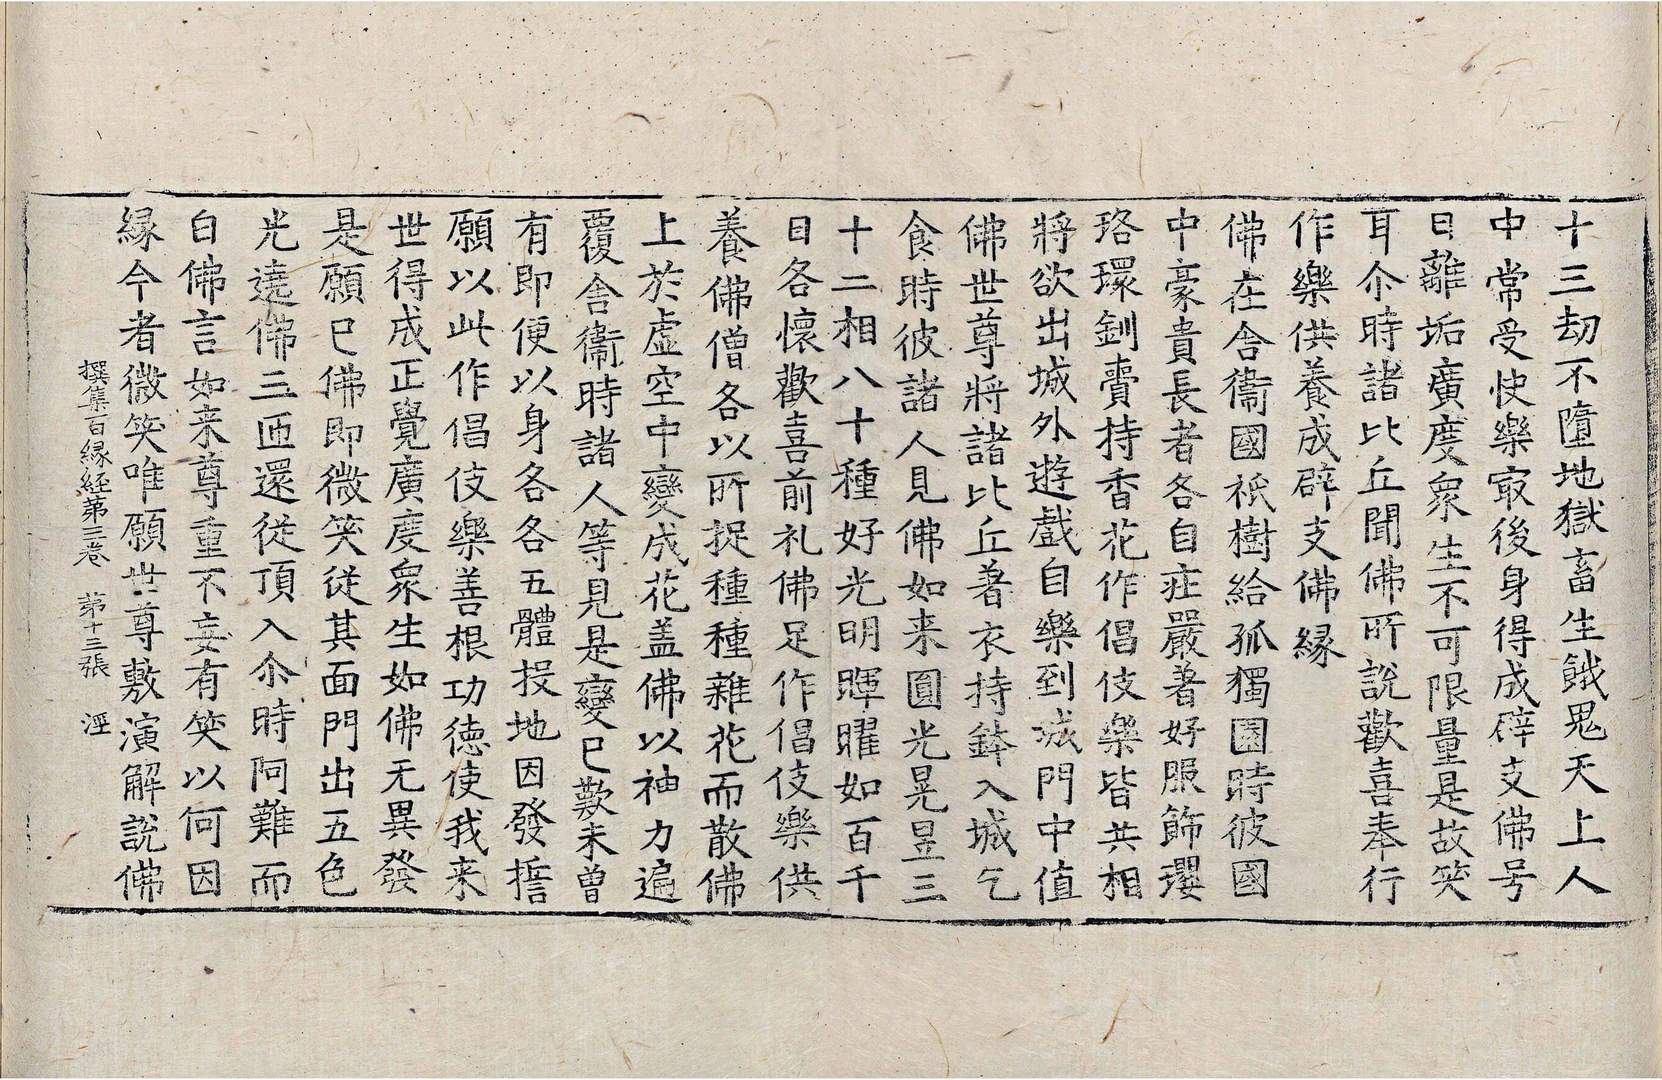 十三劫不墮地獄畜生餓鬼天上人
中常受快樂㝡後身得成辟支佛号
曰離垢廣度衆生不可限量是故笑
耳尒時諸比丘聞佛所說歡喜奉行
作樂供養成辟支佛縁
佛在舎衞國祇樹給孤獨園時彼國
中豪貴長者各自㽵嚴著好服飾瓔
珞環釧賷持香花作倡伎樂皆共相
將欲出城外遊戲自樂到城門中值
佛世尊將諸比丘著衣持鉢入城乞
食時彼諸人見佛如来圓光晃昱三
十二相八十種好光明暉曜如百千
日各懷歡喜前礼佛足作倡伎樂供
養佛僧各以所捉種種雜花而散佛
上於虛空中變成花盖佛以神力遍
覆舎衞時諸人等見是變已歎未曽
有即便以身各各五體投地因發誓
願以此作倡伎樂善根功德使我来
世得成正覺廣度衆生如佛无異發
是願已佛即微笑從其面門出五色
光遶佛三匝還從頂入尒時阿難而
白佛言如来尊重不妄有笑以何因
縁今者微笑唯願世尊敷演解說佛
撰集百縁經第三卷 第十三張 淫